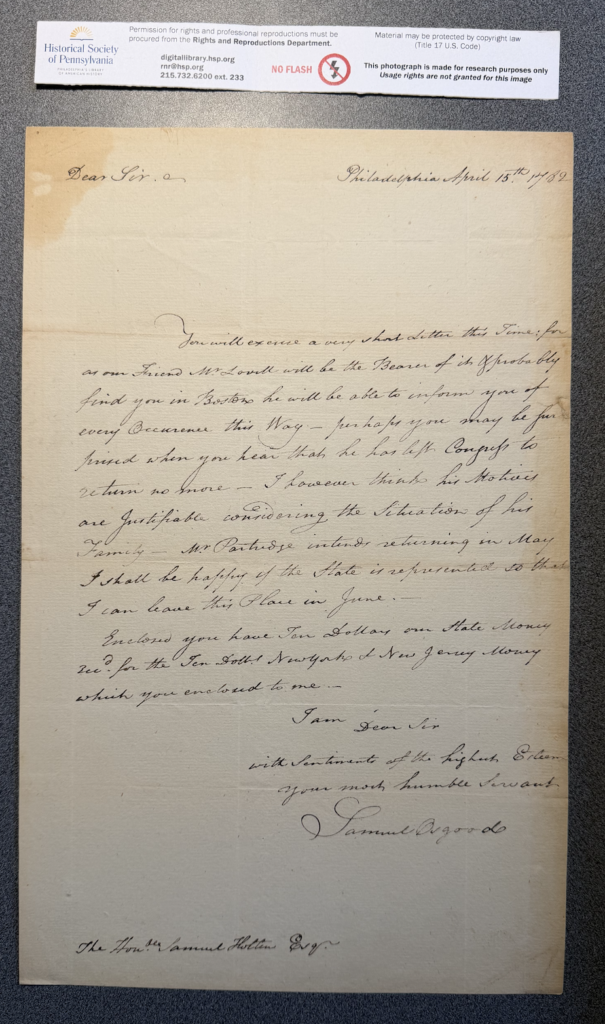 Historical Society
of Pennsylvania
Permission for rights and professional reproductions must be
procured from the Rights and Reproductions Department.
digitallibrary.hsp.org
rnr@hsp.org
215.732.6200 ext. 233
NO FLASH
Material may be protected by copyright law
(Title 17 U.S. Code)
This photograph is made for research purposes only
Usage rights are not granted for this image
Dear Sir.
Philadelphia April 15th 1782
You will excuse a very short Letter this Time: for
as our Friend Mr Lovell will be the Bearer of it & probably
find you in Boston he will be able to inform you of
every Occurence this Way — perhaps you may be sur
prised when you hear that he has left Congress to
return no more — I however think his Motives
are Justifiable considering the Situation of his
Family — Mr Partridge intends returning in May
I shall be happy if the State is represented so that
I can leave this Place in June. —
Enclosed you have Ten Dollars our State Money
recd. for the Ten Dolls New York & New Jersey Money
which you enclosed to me —
I am
Dear Sir
with Sentiments of the highest Esteem
your most humble Servant
Samuel Osgood
The Honble Samuel Holten Esqr